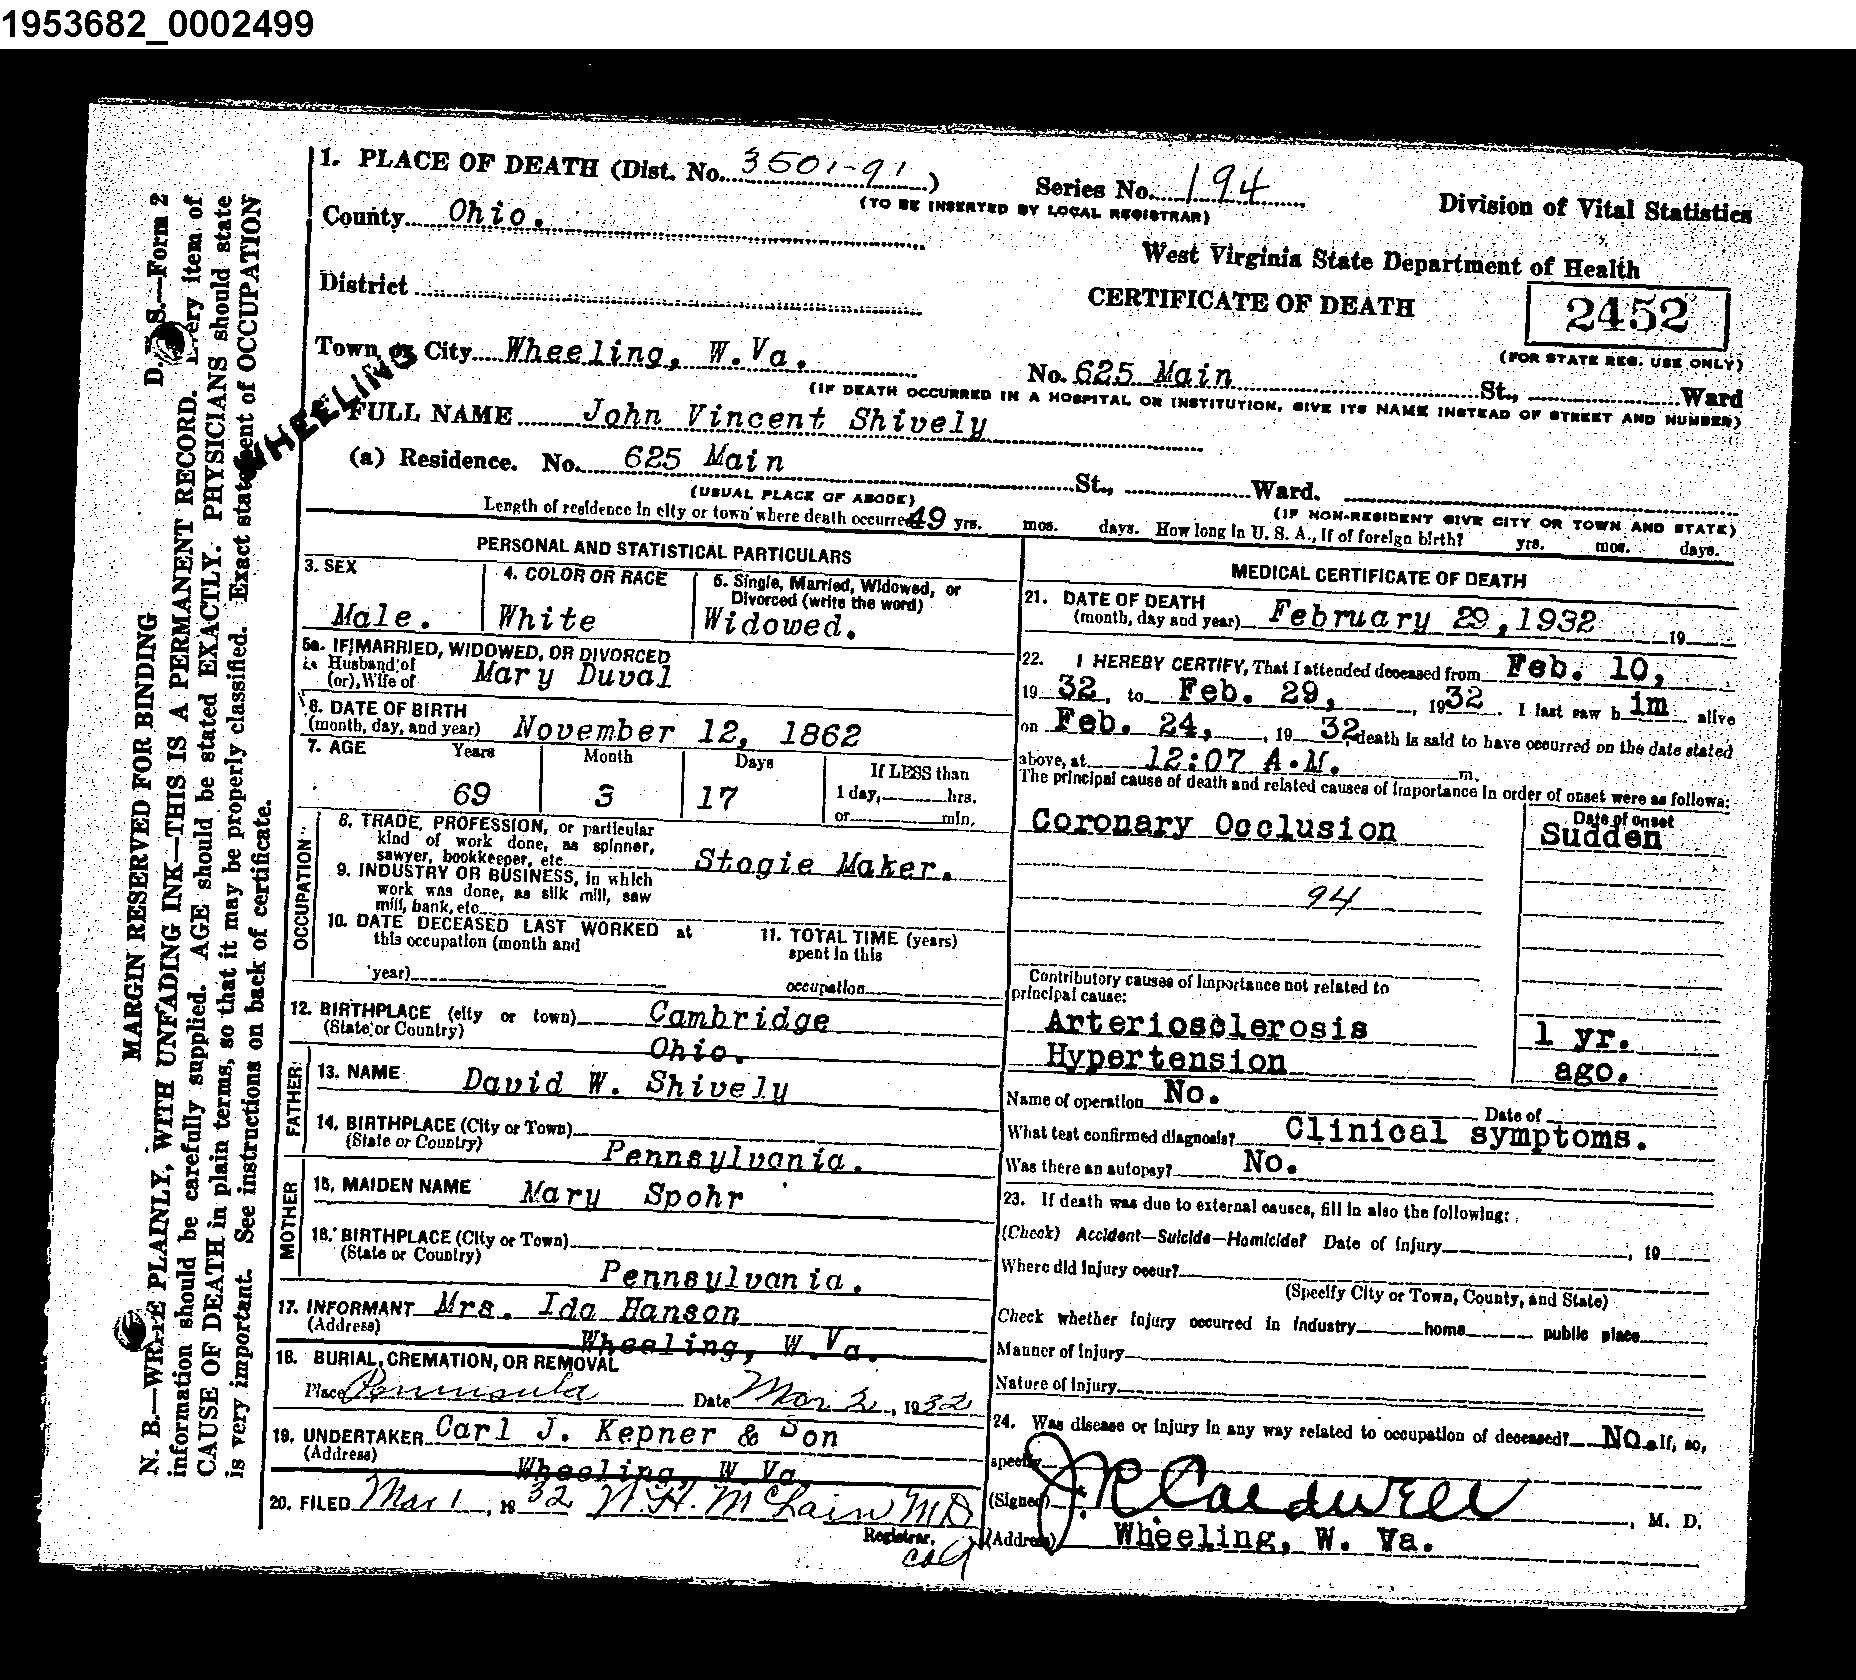 1953682_0002499
1. PLACE OF DEATH (Dist. No. 3501-91)
Series No. 194
(TO BE INSERTED BY LOCAL REGISTRAR)
Division of Vital Statistics
County Ohio.
West Virginia State Department of Health
District
CERTIFICATE OF DEATH
2452
(FOR STATE REG. USE ONLY)
Town or City Wheeling, W.Va.
No. 625 Main St., Ward
(IF DEATH OCCURRED IN A HOSPITAL OR INSTITUTION, GIVE ITS NAME INSTEAD OF STREET AND NUMBER)
WHEELING
FULL NAME John Vincent Shively
(a) Residence. No. 625 Main St., Ward.
(USUAL PLACE OF ABODE)
(IF NON-RESIDENT GIVE CITY OR TOWN AND STATE)
Length of residence in city or town where death occurred 49 yrs. mos. days. How long in U. S. A., if of foreign birth? yrs. mos. days.
PERSONAL AND STATISTICAL PARTICULARS
3. SEX
Male.
4. COLOR OR RACE
White
5. Single, Married, Widowed, or
Divorced (write the word)
Widowed.
5a. IF MARRIED, WIDOWED, OR DIVORCED
Husband of
(or) Wife of
Mary Duval
6. DATE OF BIRTH
(month, day, and year) November 12, 1862
7. AGE Years Month Days If LESS than
69 3 17 1 day, hrs.
or min.
OCCUPATION
8. TRADE, PROFESSION, or particular
kind of work done, as spinner,
sawyer, bookkeeper, etc.
Stogie Maker.
9. INDUSTRY OR BUSINESS, in which
work was done, as silk mill, saw
mill, bank, etc.
10. DATE DECEASED LAST WORKED at
this occupation (month and
year)
11. TOTAL TIME (years)
spent in this
occupation
12. BIRTHPLACE (city or town) Cambridge
(State or Country) Ohio.
FATHER
13. NAME David W. Shively
14. BIRTHPLACE (City or Town)
(State or Country) Pennsylvania.
MOTHER
15. MAIDEN NAME Mary Spohr
16. BIRTHPLACE (City or Town)
(State or Country)
Pennsylvania.
17. INFORMANT Mrs. Ida Hanson
(Address) Wheeling, W.Va.
18. BURIAL, CREMATION, OR REMOVAL
Place Peninsula Date Mar 2, 1932
19. UNDERTAKER Carl J. Kepner & Son
(Address)
Wheeling, W.Va.
20. FILED Mar 1, 1932 W.H. McLain MD
Registrar.
MEDICAL CERTIFICATE OF DEATH
21. DATE OF DEATH
(month, day and year) February 29, 1932 19
22. I HEREBY CERTIFY, That I attended deceased from Feb. 10,
19 32, to Feb. 29, 1932. I last saw h im alive
on Feb. 24, 19 32, death is said to have occurred on the date stated
above, at 12:07 A.M. m.
The principal cause of death and related causes of importance in order of onset were as follows:
Date of onset
Coronary Occlusion Sudden
94
Contributory causes of importance not related to
principal cause:
Arteriosclerosis 1 yr.
Hypertension ago.
Name of operation No. Date of
What test confirmed diagnosis? Clinical symptoms.
Was there an autopsy? No.
23. If death was due to external causes, fill in also the following:
(Check) Accident—Suicide—Homicide? Date of injury , 19
Where did injury occur?
(Specify City or Town, County, and State)
Check whether injury occurred in industry home public place
Manner of injury
Nature of injury
24. Was disease or injury in any way related to occupation of deceased? No. If, so,
specify
(Signed) J.R. Caldwell, M. D.
(Address) Wheeling, W. Va.
MARGIN RESERVED FOR BINDING
D. S.—Form 2
N. B.—WRITE PLAINLY, WITH UNFADING INK—THIS IS A PERMANENT RECORD. Every item of
information should be carefully supplied. AGE should be stated EXACTLY. PHYSICIANS should state
CAUSE OF DEATH in plain terms, so that it may be properly classified. Exact statement of OCCUPATION
is very important. See instructions on back of certificate.